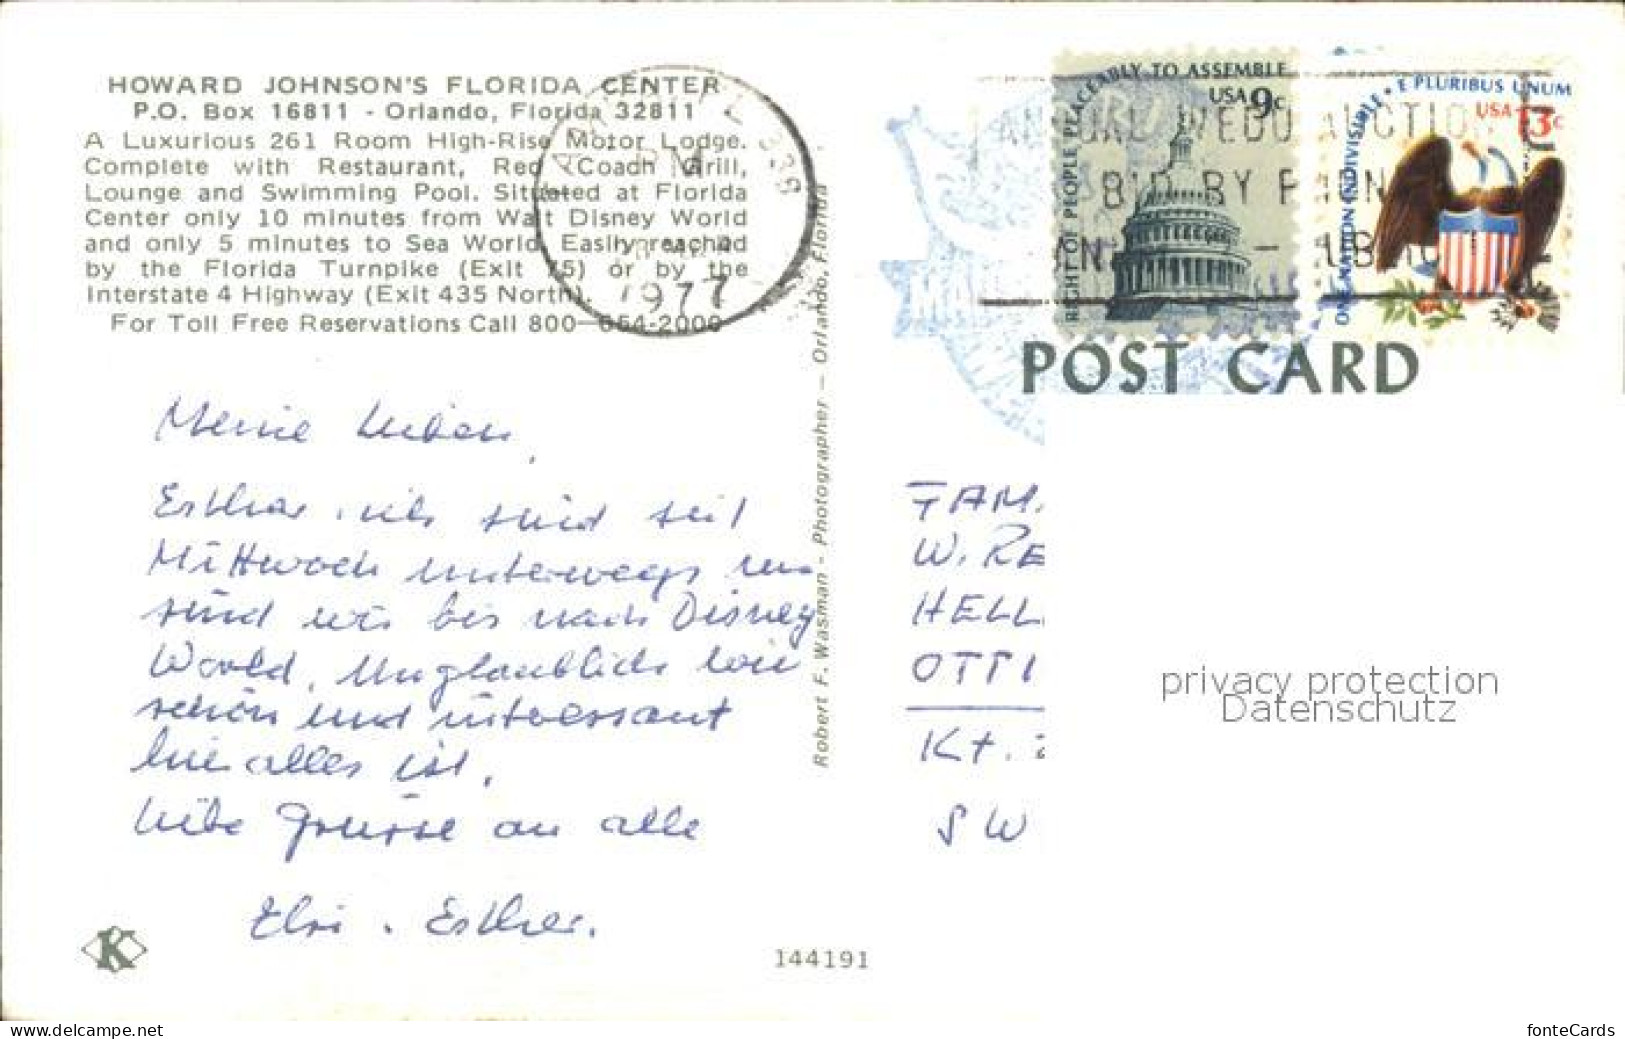 HOWARD JOHNSON'S FLORIDA CENTER
P.O. Box 16811 - Orlando, Florida 32811
A Luxurious 261 Room High-Rise Motor Lodge.
Complete with Restaurant, Red Coach Grill,
Lounge and Swimming Pool. Situated at Florida
Center only 10 minutes from Walt Disney World
and only 5 minutes to Sea World. Easily reached
by the Florida Turnpike (Exit 75) or by the
Interstate 4 Highway (Exit 435 North).
For Toll Free Reservations Call 800-654-2000
PM
1977
RIGHT OF PEOPLE PEACEABLY TO ASSEMBLE
USA 9c
ONE NATION INDIVISIBLE • E PLURIBUS UNUM
USA 13c
BID BY
POST CARD
Meine Lieben,
Esther . ich sind seit
Mittwoch unterwegs
sind wir bis nach Disney
World. Unglaublich wie
schön und interessant
hier alles ist.
Liebe Grüsse an alle
Elsi . Esther.
Robert F. Wasman - Photographer - Orlando, Florida
FAM.
W. RE
HELL
OTTI
Kt. Z
SW
privacy protection
Datenschutz
K
144191
www.delcampe.net
fonteCards